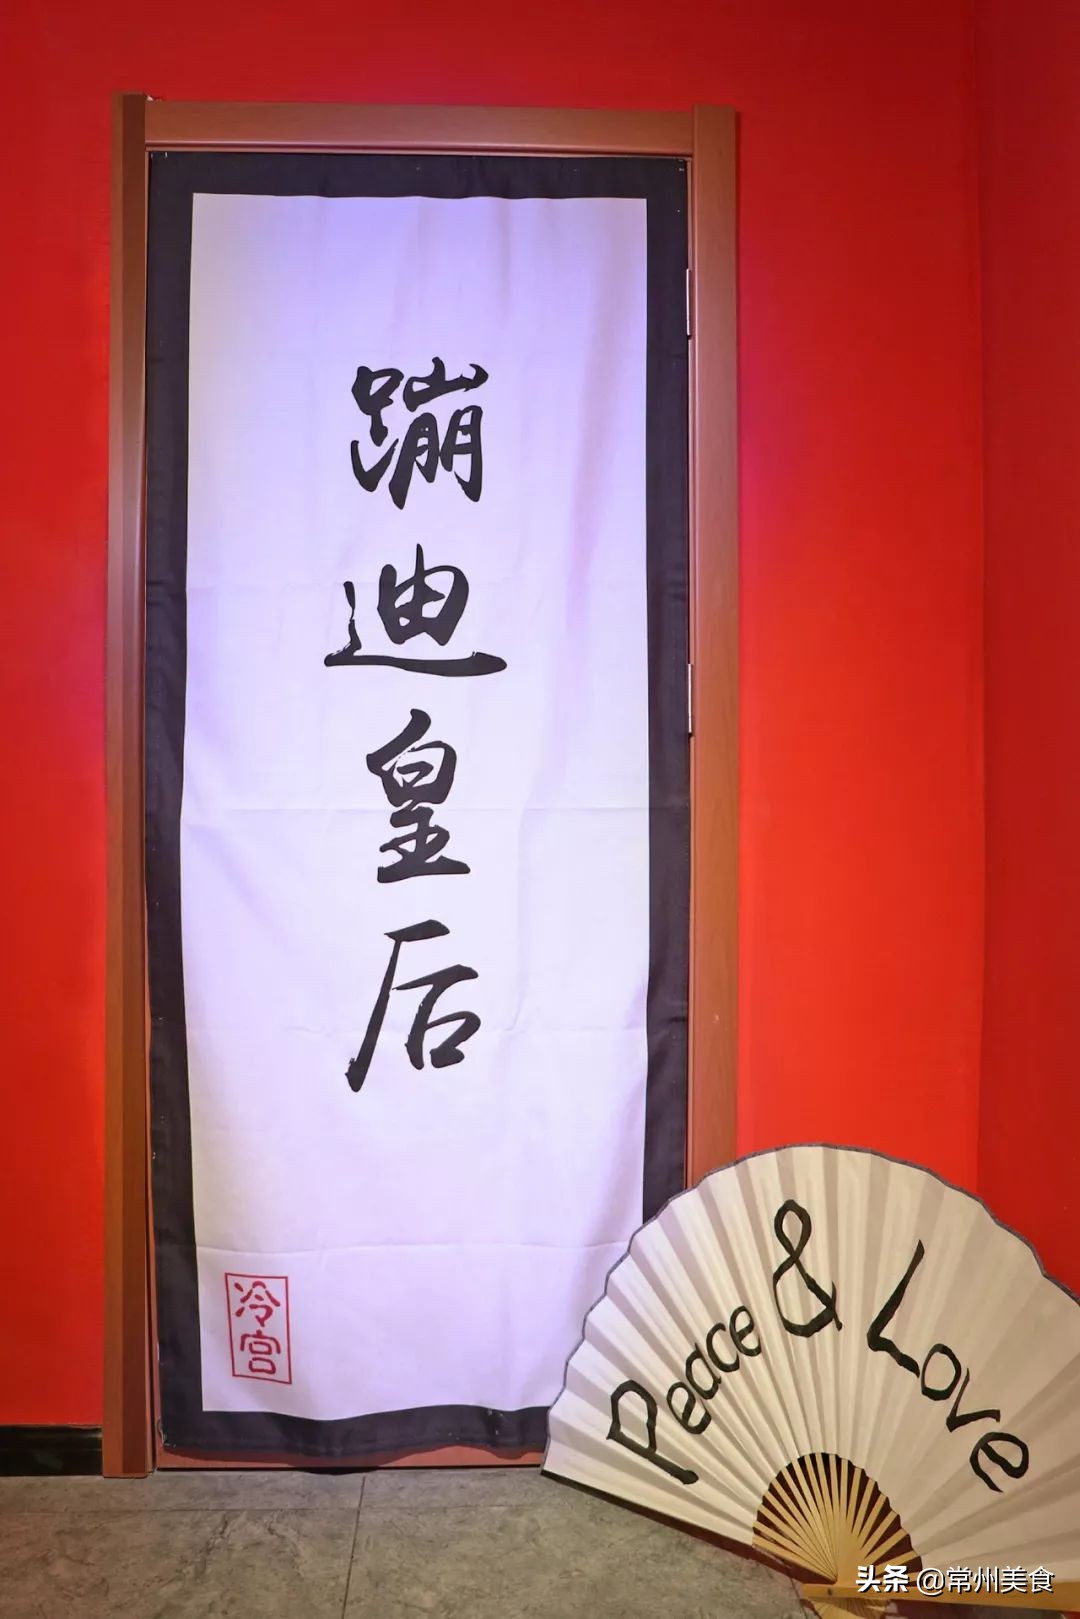 蹦迪皇后
冷宫
Peace & Love
头条 @常州美食